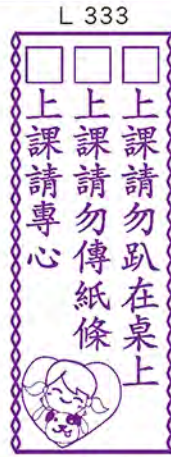 L 333
□上課請勿趴在桌上
□上課請勿傳紙條
□上課請專心